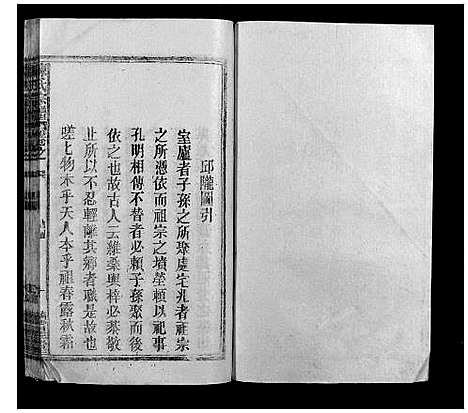 邱隴圖引
室廬者子孫之所聚處宅兆者祖宗
之所憑依而祖宗之墳塋頼以祀事
孔明相傳不替者必賴子孫聚而後
依之也故古人云維桑與梓必恭敬
止所以不忍輕離其鄉者職是故也
嗟乎物本乎天人本乎祖春露秋霜
氏宗譜